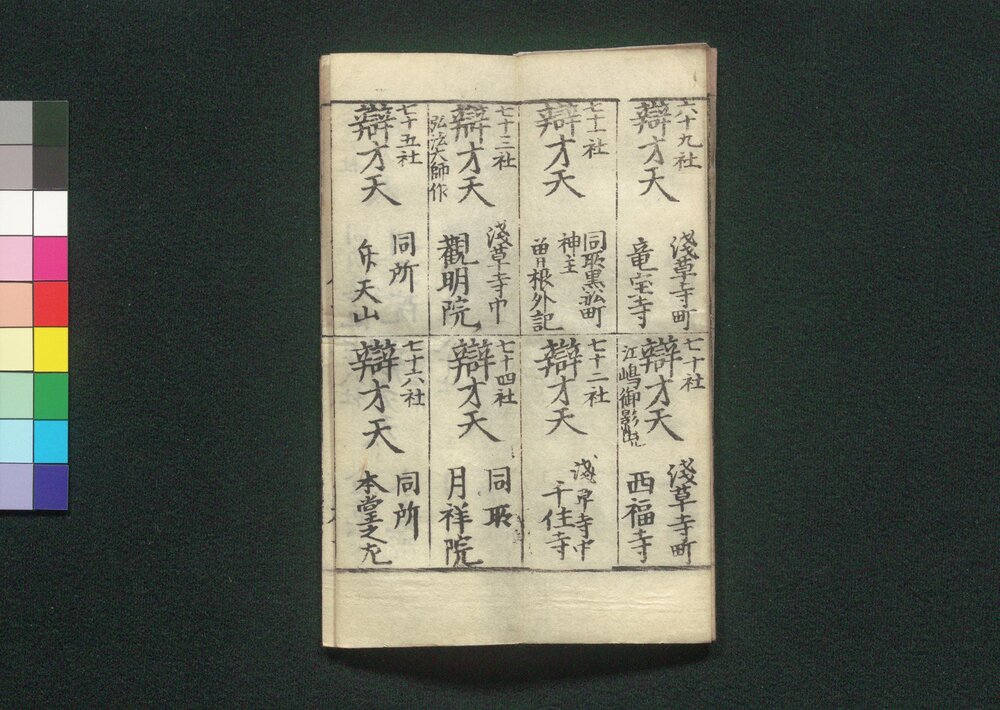 六十九社
辯才天
淺草寺町
竜宝寺
七十社
辯才天
江嶋御影
淺草寺町
西福寺
七十一社
辯才天
同所黒船町
神主
曽根外記
七十二社
辯才天
淺草寺中
千住寺
七十三社
辯才天
弘法大師作
淺草寺中
觀明院
七十四社
辯才天
同所
月祥院
七十五社
辯才天
同所
弁天山
七十六社
辯才天
同所
本堂之左